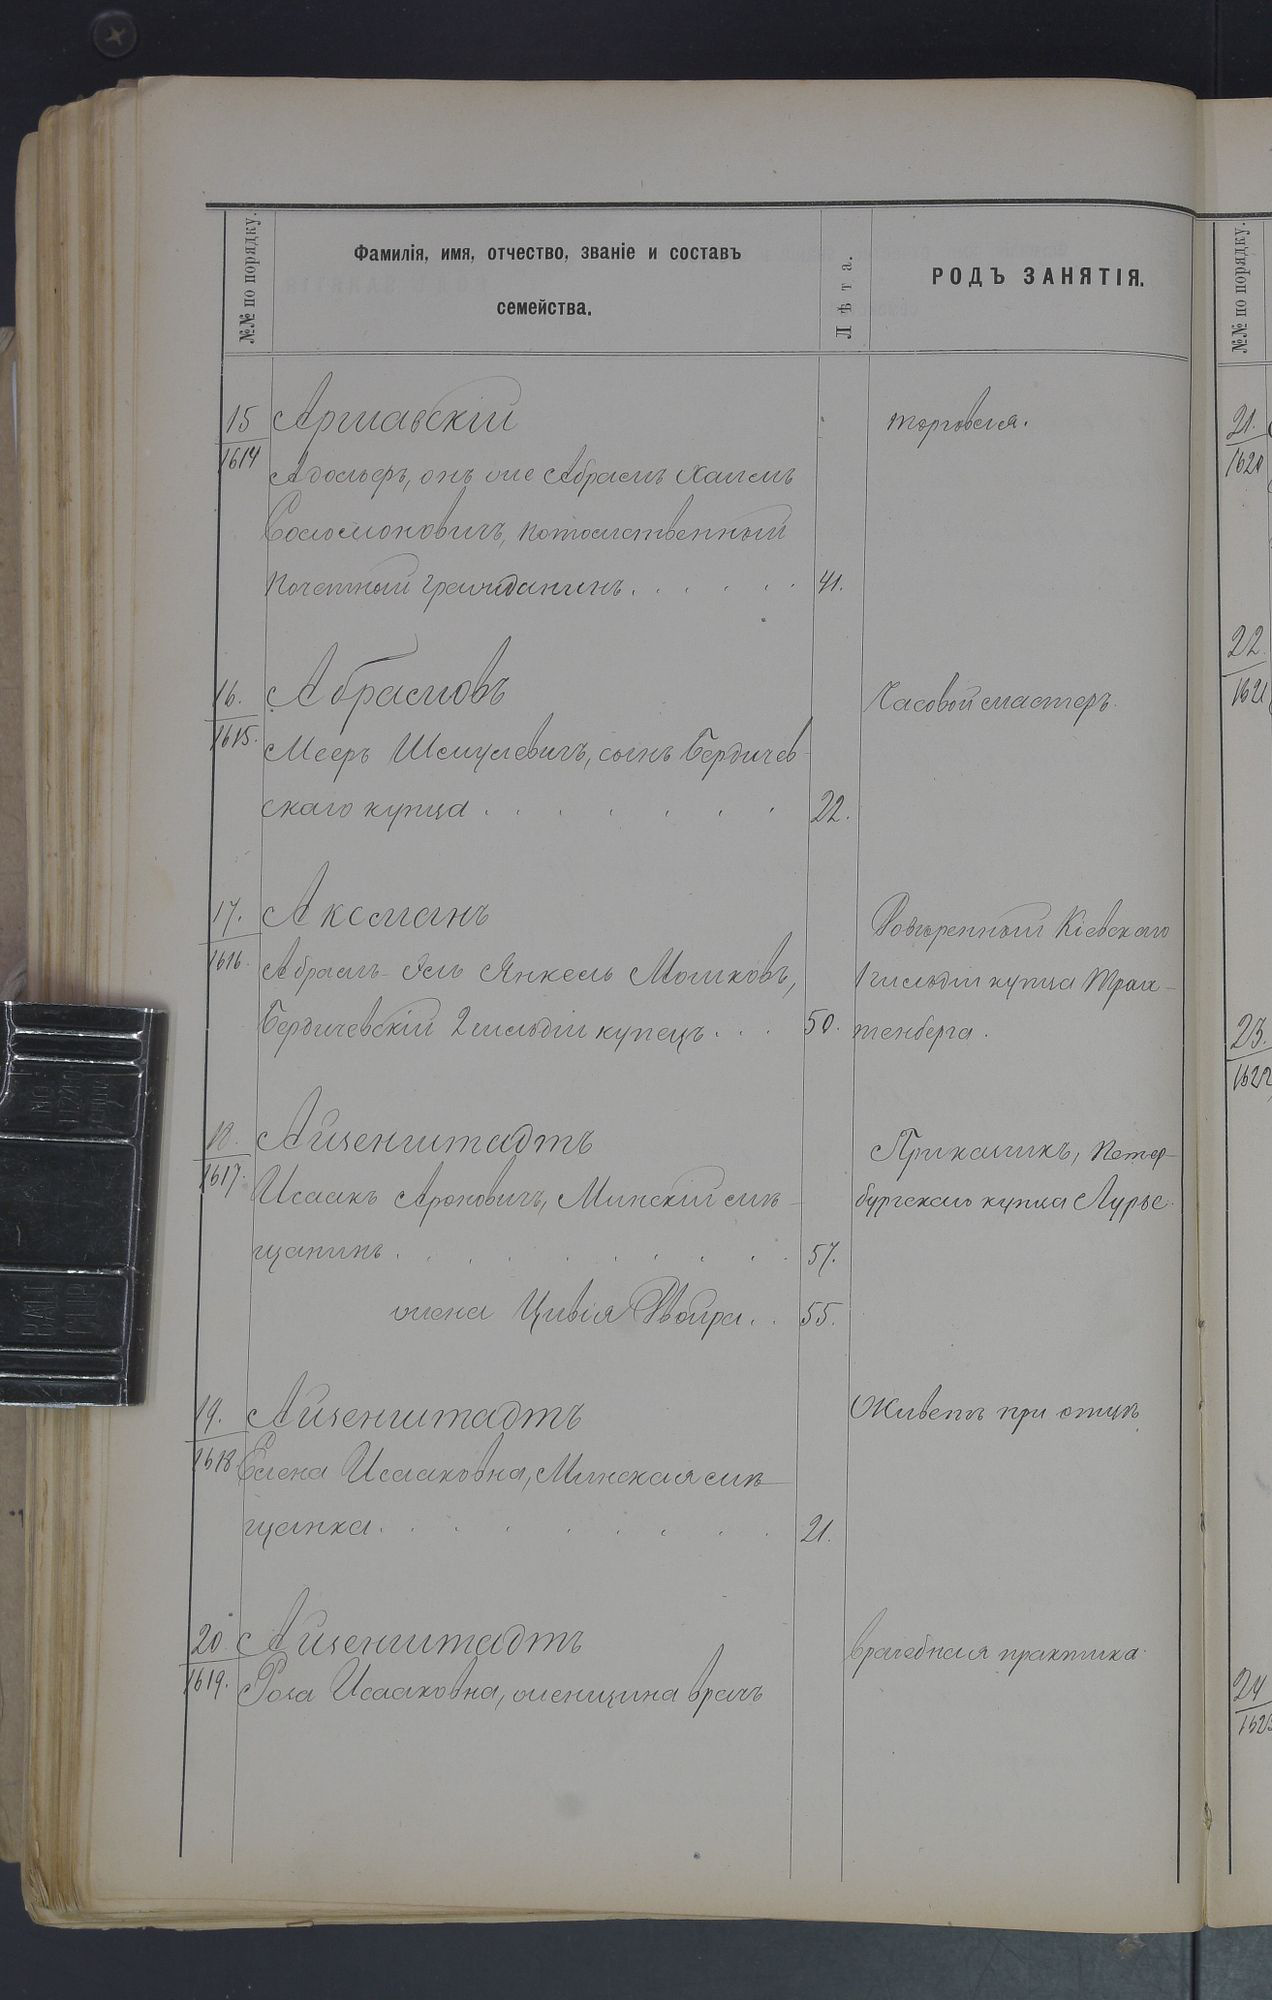 №№ по порядку.
Фамилія, имя, отчество, званіе и составъ
семейства.
Лѣта.
РОДЪ ЗАНЯТІЯ.
15
1614
Аршавскій
торговля.
Адольфъ, онъ же Абрамъ Хаимъ
Соломоновичъ, потомственный
почетный гражданинъ . . . . . . 41.
16.
1615.
Абрамовъ
Часовой мастеръ.
Мееръ Шмулевичъ, сынъ Бердичев-
скаго купца . . . . . . 22.
17.
1616.
Аксманъ
Довѣренный Кіевскаго
Абрамъ- Янкель Мошковъ,
1 гильдіи купца Трах-
Бердичевскій 2 гильдіи купецъ . . . 50.
тенберга.
18.
1617.
Айзенштадтъ
Прикащикъ, Петер-
Исаакъ Ароновичъ, Минскій мѣ-
бургскаго купца Лурье.
щанинъ . . . . . . . . 57.
жена Цивія Двойра . . 55.
19.
1618
Айзенштадтъ
Живетъ при отцѣ
Елена Исааковна, Минская мѣ-
щанка . . . . . . . . 21.
20.
1619.
Айзенштадтъ
врачебная практика.
Роза Исааковна, женщина врачъ
№№ по порядку.
21.
1620
22.
1621
23.
1622
24
1623